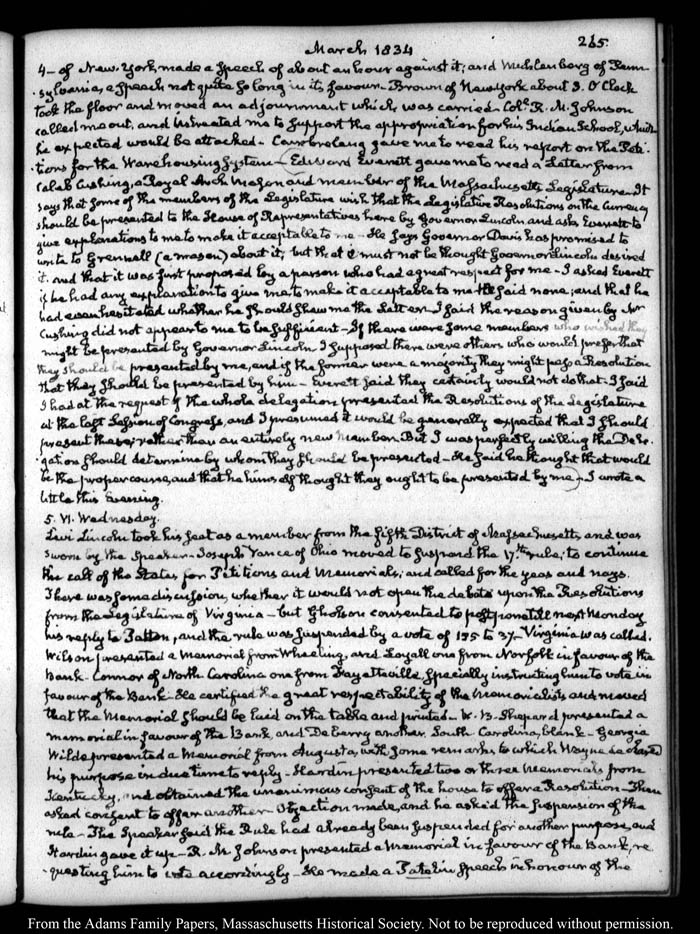 March 1834
265.
4 – of New-York, made a Speech of about an hour against it; and Muhlenberg of Penn-
sylvania, a Speech not quite so long in its favour – Brown of New York about 3. O'Clock
took the floor and moved an adjournment which was carried – Colᵗ R. M. Johnson
called me out, and intreated me to support the appropriation for his Indian School, which
he expected would be attacked – Cambreleng gave me to read his report on the Peti-
tions for the Warehousing System – (Edward Everett gave me to read a Letter from
Caleb Cushing, a Royal Arch Mason and member of the Massachusetts Legislature. It
says that some of the members of the Legislature wish that the Legislative Resolutions on the Currency
should be presented to the House of Representatives here by Governor Lincoln and asks Everett to
give explanations to me to make it acceptable to me – He says Governor Davis has promised to
write to Grennell (a mason) about it, but that it must not be thought Governor Lincoln desired
it. and that it was just proposed by a person who had a great respect for me – I asked Everett
if he had any explanation to give me, to make it acceptable to me. He said none, and that he
had even hesitated whether he should shew me the Letter. I said the reason given by Mr
Cushing did not appear to me to be sufficient – If there were some members who wished they
might be presented by Governor Lincoln, I supposed there were others who would prefer that
they should be presented by me, and if the former were a majority they might pass a Resolution
that they should be presented by him – Everett said they certainly would not do that – I said
I had at the request of the whole delegation presented the Resolutions of the Legislature
at the last Session of Congress, and I presumed it would be generally expected that I should
present these, rather than an entirely new Member. But I was perfectly willing the Dele-
gation should determine by whom they should be presented – He said he thought that would
be the proper course, and that he himself thought they ought to be presented by me –) I wrote a
little this Evening.
5. VI. Wednesday.
Levi Lincoln took his seat as a member from the fifth District of Massachusetts, and was
sworn by the Speaker – Joseph Vance of Ohio moved to suspend the 17.th rule; to continue
the call of the States for Petitions and Memorials; and called for the yeas and nays.
There was some discussion, whether it would not open the debate upon the Resolutions
from the Legislature of Virginia – but Gholson consented to postpone till next Monday
his reply to Patton, and the rule was suspended by a vote of 135 to 37. Virginia was called.
Wilson presented a Memorial from Wheeling, and Loyall one from Norfolk in favour of the
Bank – Connor of North Carolina one from Fayetteville, specially instructing him to vote in
favour of the Bank. He certified the great respectability of the Memorialists and moved
that the Memorial should be laid on the table and printed – W. B. Shepard presented a
memorial in favour of the Bank, and Deberry another. South Carolina, blank – Georgia
Wilde presented a Memorial from Augusta, with some remarks to which Wayne declared
his purpose in due time to reply – Hardin presented two or three Memorials from
Kentucky, and obtained the unanimous consent of the house to offer a Resolution – Then
asked consent to offer another. Objection made, and he asked the suspension of the
rule – The Speaker said the Rule had already been suspended for another purpose, and
Hardin gave it up – R. M. Johnson presented a Memorial in favour of the Bank, re-
questing him to vote accordingly – He made a Patelin Speech in honour of the
From the Adams Family Papers, Massachusetts Historical Society. Not to be reproduced without permission.